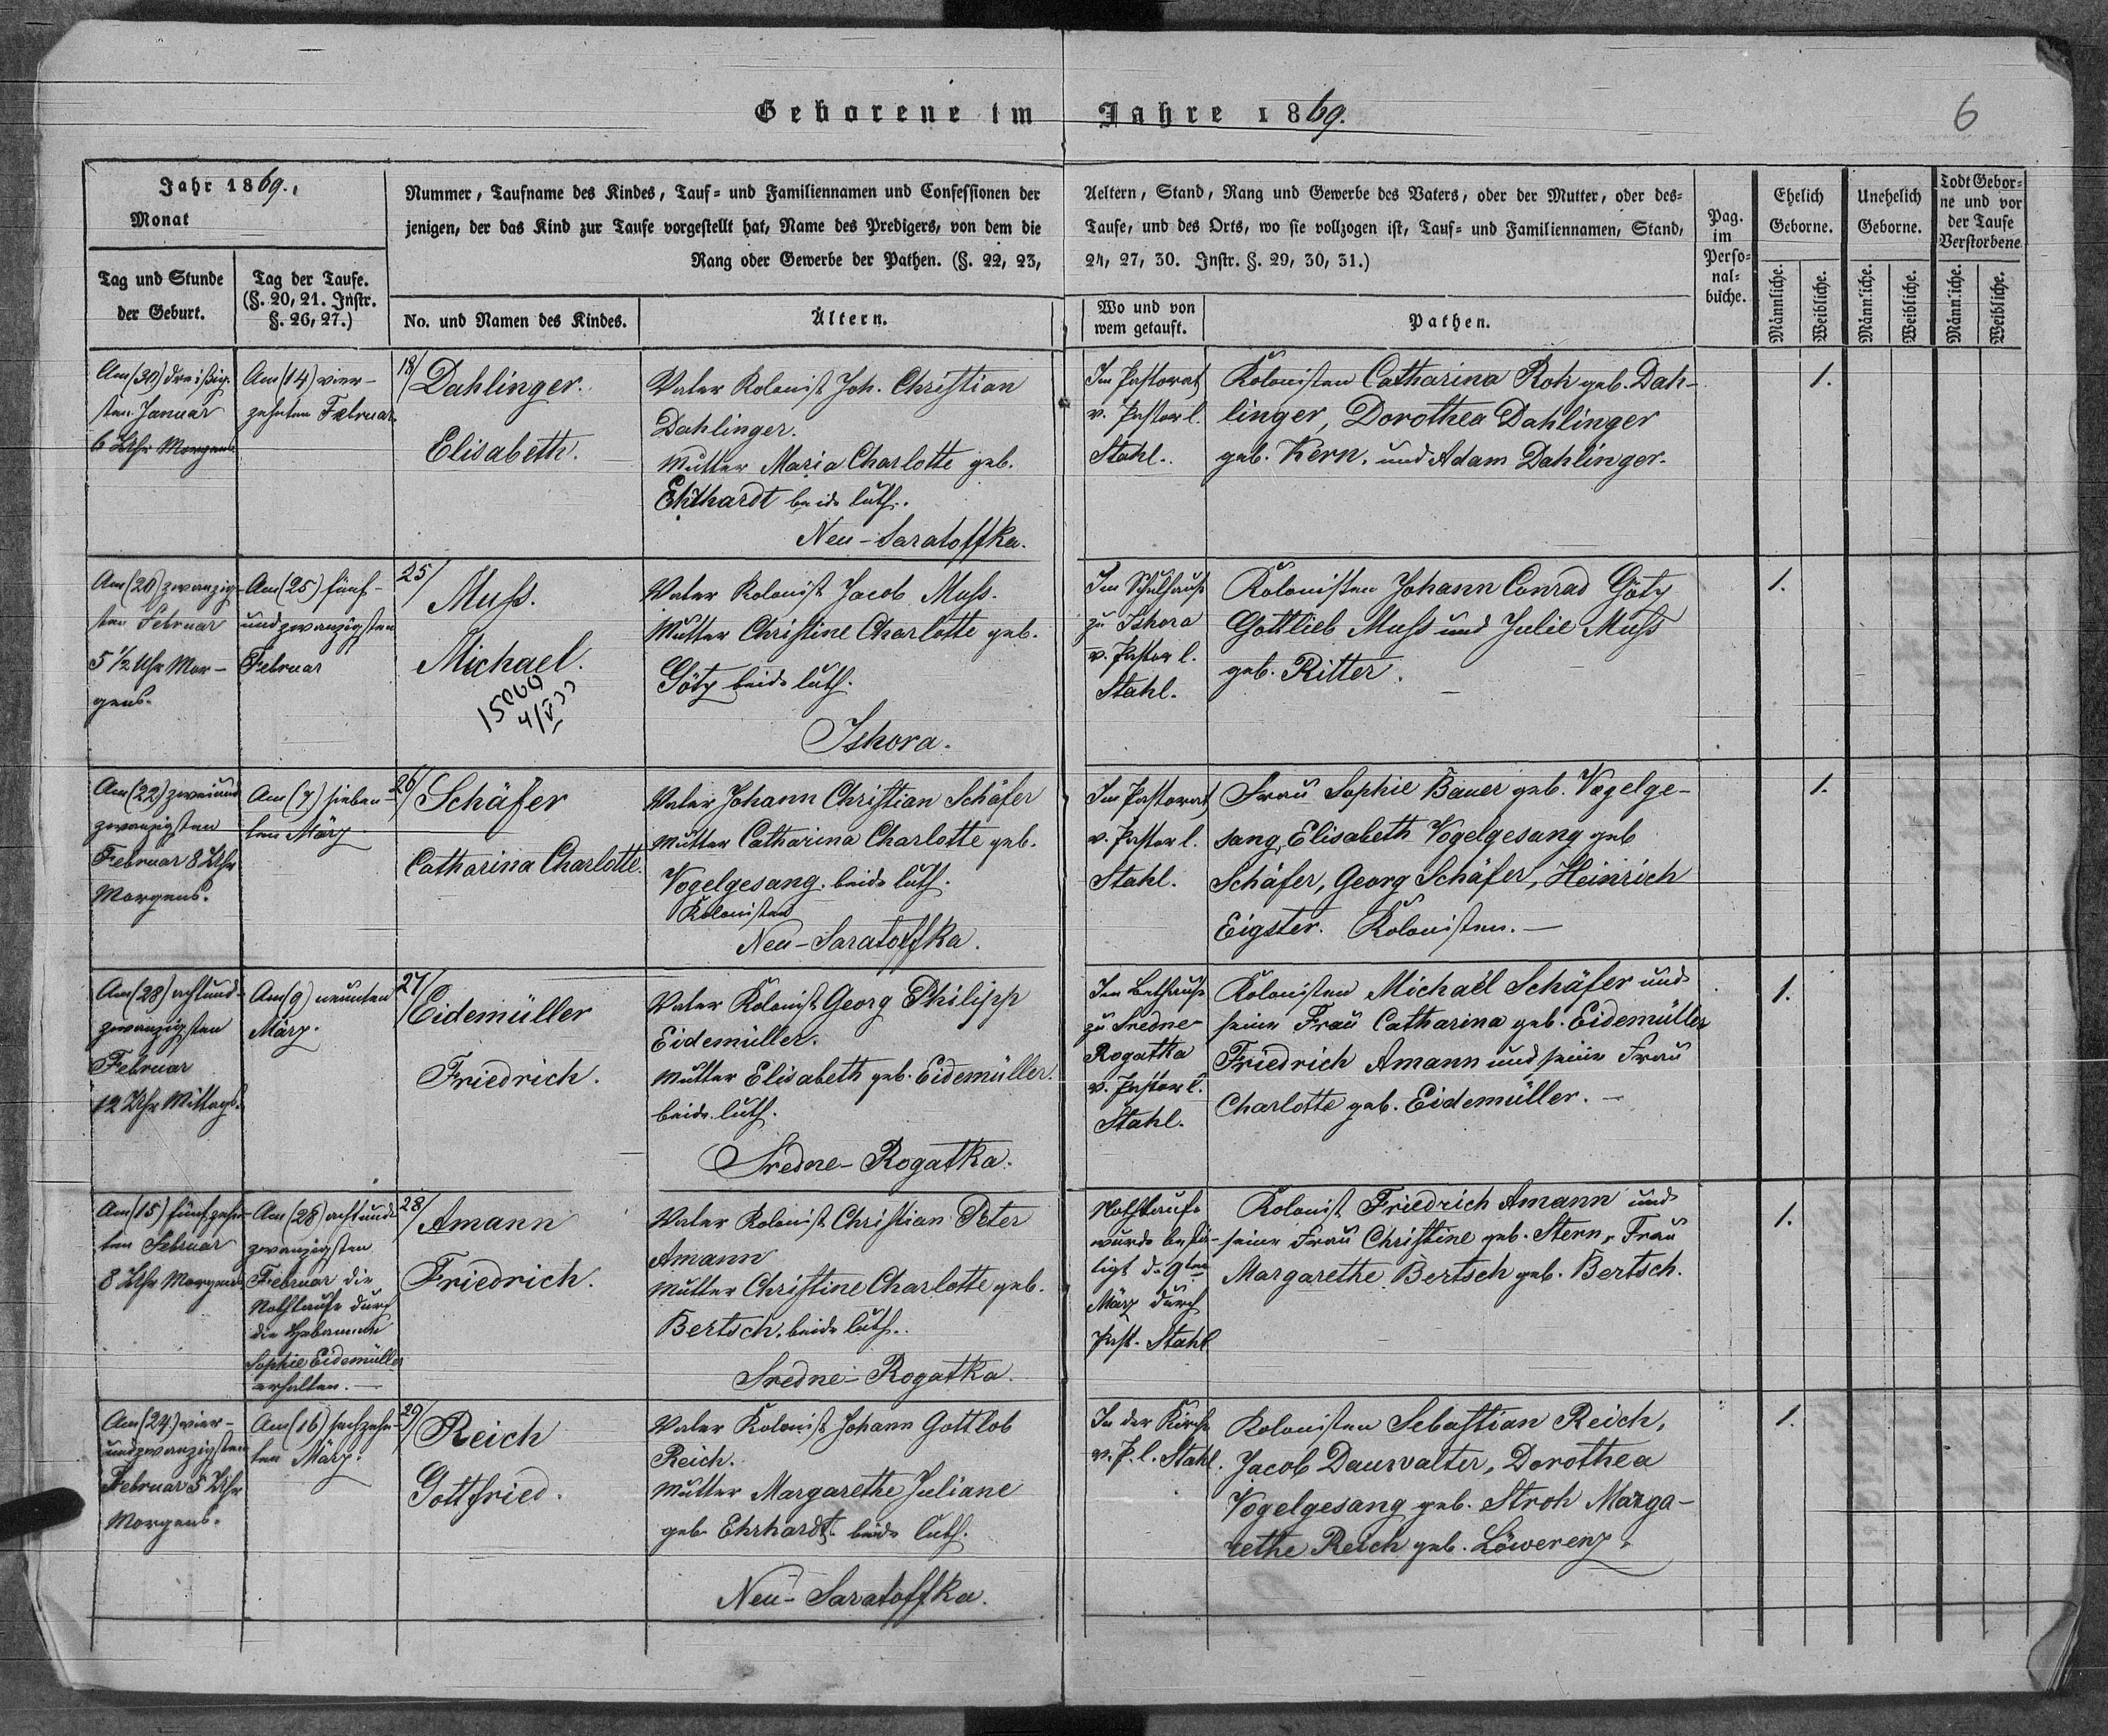 Geborene im Jahre 1869.
6
Jahr 1869.
Monat
Tag und Stunde
der Geburt.
Tag der Taufe.
(§. 20, 21. Instr.
§. 26, 27.)
Nummer, Taufname des Kindes, Tauf- und Familiennamen und Confessionen der
jenigen, der das Kind zur Taufe vorgestellt hat, Name des Predigers, von dem die
Rang oder Gewerbe der Pathen. (§. 22, 23,
No. und Namen des Kindes.
Ältern.
Aeltern, Stand, Rang und Gewerbe des Vaters, oder der Mutter, oder des-
Taufe, und des Orts, wo sie vollzogen ist, Tauf- und Familiennamen, Stand,
24, 27, 30. Instr. §. 29, 30, 31.)
Wo und von
wem getauft.
Pathen.
Pag.
im
Perso-
nal-
buche.
Ehelich
Geborne.
Unehelich
Geborne.
Todt Gebor-
ne und vor
der Taufe
Verstorbene.
Männliche.
Weibliche.
Männliche.
Weibliche.
Männliche.
Weibliche.
Am (30) dreißig-
sten Januar
6 Uhr Morgens
Am (14) vier-
zehnten Februar.
18/ Dahlinger.
Elisabeth.
Vater Kolonist Joh. Christian
Dahlinger.
Mutter Maria Charlotte geb.
Ehrhardt beide luth.
Neu-Saratoffka.
Im Pastorat
v. Pastor l.
Stahl.
Kolonisten Catharina Roh geb. Dah-
linger, Dorothea Dahlinger
geb. Kern. und Adam Dahlinger.
1.
Am (20) zwanzig-
sten Februar
5 1/2 Uhr Mor-
gens.
Am (25) fünf-
undzwanzigsten
Februar
25/
Muss.
Michael.
Vater Kolonist Jacob Muss.
Mutter Christine Charlotte geb.
Götz beide luth.
Ishora.
Im Schulhause
zu Ishora
v. Pastor l.
Stahl.
Kolonisten Johann Conrad Götz
Gottlieb Muss und Julie Muss
geb. Ritter.
1.
Am (22) zweiund
zwanzigsten
Februar 8 Uhr
Morgens.
Am (7) sieben-
ten März
26/ Schäfer
Catharina Charlotte.
Vater Johann Christian Schäfer
Mutter Catharina Charlotte geb.
Vogelgesang. beide luth.
Kolonisten
Neu-Saratoffka.
Im Pastorat
v. Pastor l.
Stahl.
Frau Sophie Bauer geb. Vogelge-
sang, Elisabeth Vogelgesang geb
Schäfer, Georg Schäfer, Heinrich
Eigster. Kolonisten.
1.
Am (28) achtund-
zwanzigsten
Februar
12 Uhr Mittags.
Am (9) neunten
März.
27/ Eidemüller
Friedrich.
Vater Kolonist Georg Philipp
Eidemüller.
Mutter Elisabeth geb. Eidemüller.
beide luth.
Sredne-Rogatka.
Im Bethause
zu Sredne-
Rogatka
v. Pastor l.
Stahl.
Kolonisten Michaël Schäfer und
seine Frau Catharina geb. Eidemüller
Friedrich Amann und seine Frau
Charlotte geb. Eidemüller.
1.
Am (15) fünfzehn-
ten Februar
8 Uhr Morgens
Am (28) achtund
zwanzigsten
Februar die
Nothtaufe durch
die Hebamme
Sophie Eidemüller
erhalten.
28/ Amann
Friedrich.
Vater Kolonist Christian Peter
Amann
Mutter Christine Charlotte geb.
Bertsch. beide luth.
Sredne-Rogatka.
Nothtaufe
wurde bestä-
tigt d. 9ten
März durch
Past. Stahl
Kolonist Friedrich Amann und
seine Frau Christine geb. Stern, Frau
Margarethe Bertsch geb. Bertsch.
1.
Am (24) vier-
undzwanzigsten
Februar 5 Uhr
Morgens.
Am (16) sechzehn-
ten März.
29/ Reich
Gottfried.
Vater Kolonist Johann Gottlob
Reich.
Mutter Margarethe Juliane
geb. Ehrhardt. beide luth.
Neu-Saratoffka.
In der Kirche
v. P. l. Stahl.
Kolonisten Sebastian Reich,
Jacob Daurwalter, Dorothea
Vogelgesang geb. Stroh Marga-
rethe Reich geb. Löwerenz.
1.